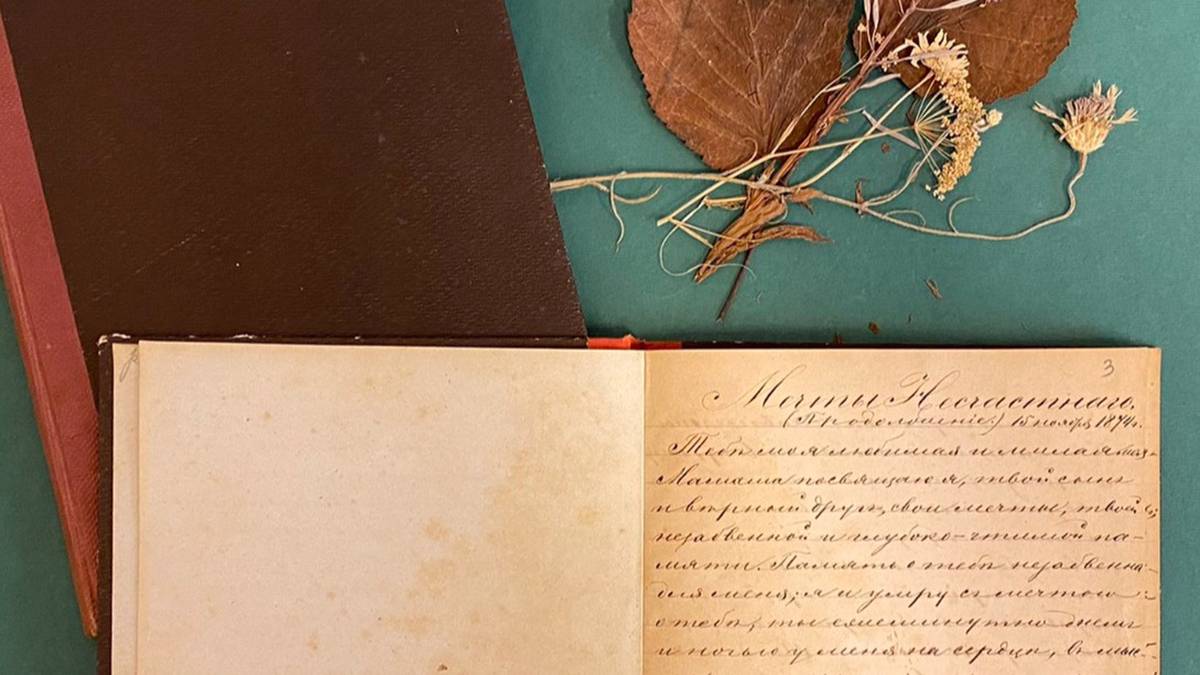 3
Мечты Несчастнаго.
(Продолженiе.) 15 ноября 1874г.
Тебѣ моя любимая и милая
Мамаша посвящаю я, твой сынъ
и вѣрный другъ, свои мечты, твоей
незабвенной и глубоко-чтимой па-
мяти. Память о тебѣ незабвенна
для меня; я и умру съ мечтою
о тебѣ, ты ежеминутно днемъ
и ночью у меня на сердцѣ, въ мыс-